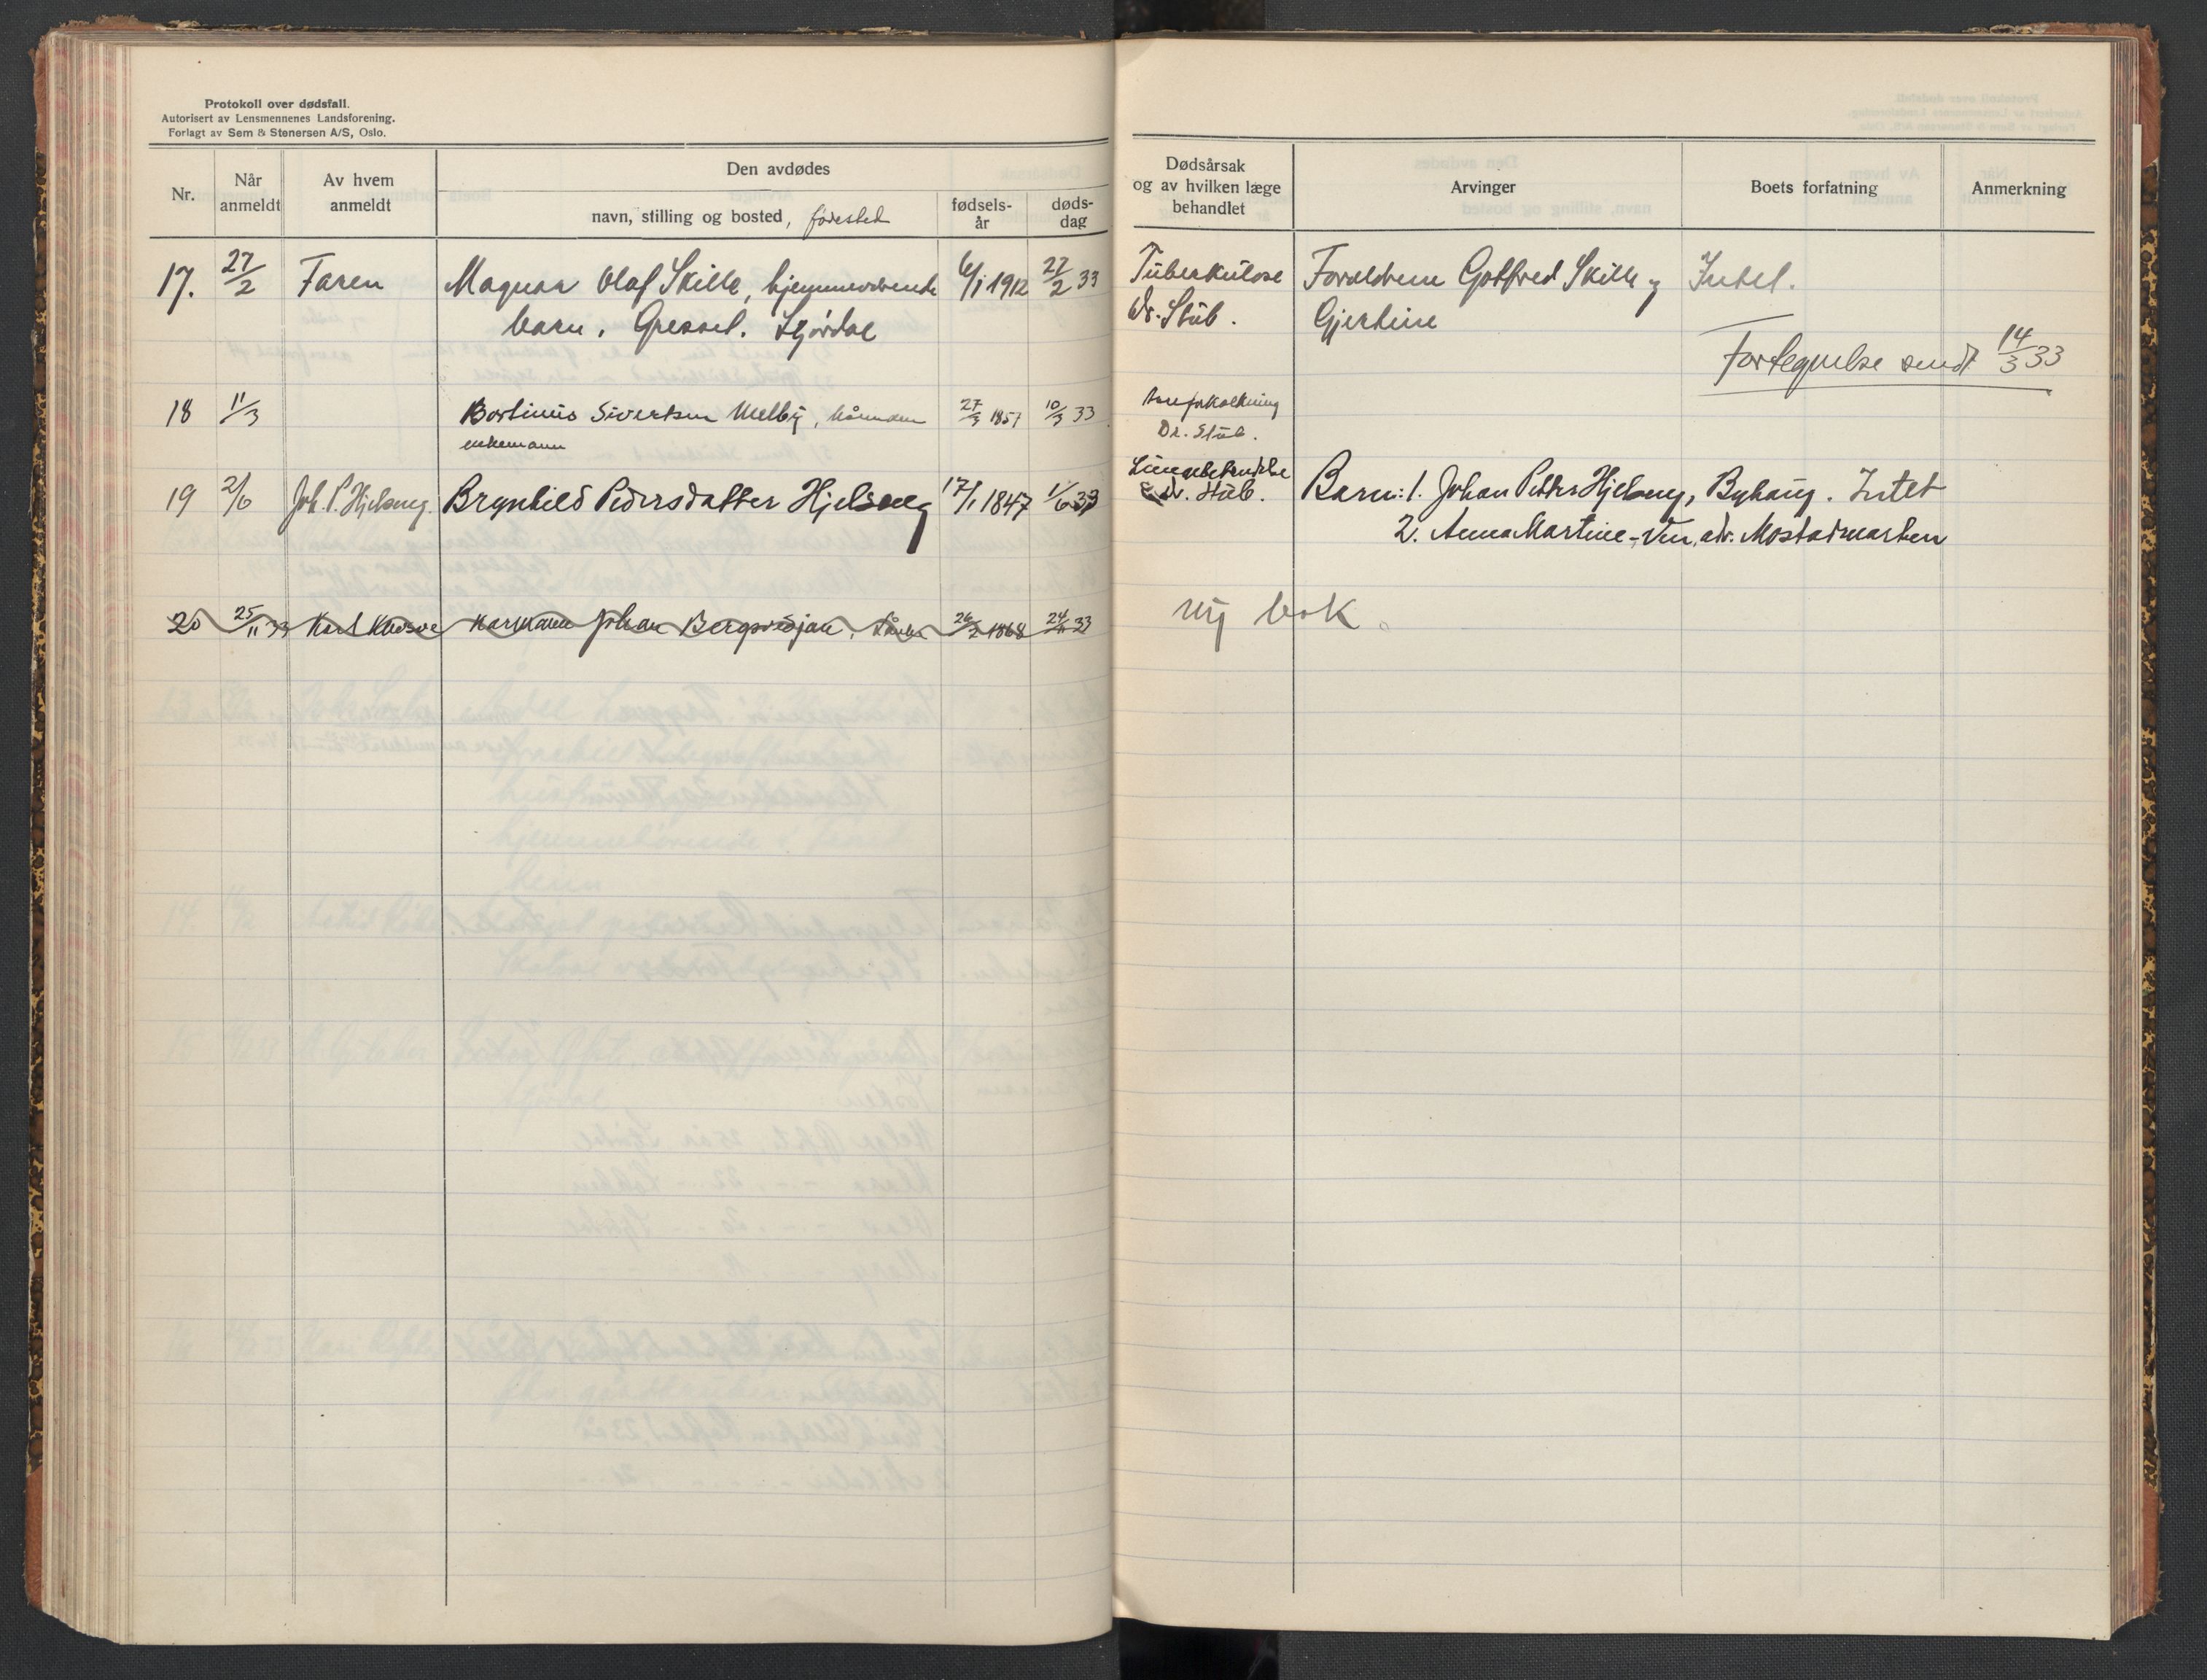 Protokoll over dødsfall.
Autorisert av Lensmennenes Landsforening.
Forlagt av Sem & Stenersen A/S, Oslo.
Nr.
Når anmeldt
Av hvem anmeldt
Den avdødes
navn, stilling og bosted, fødested
fødsels-år
døds-dag
Dødsårsak og av hvilken læge behandlet
Arvinger
Boets forfatning
Anmerkning
17. 27/2 Faren Magnar Olaf Skille, hjemmeværende 6/1 1912 27/2 33 Tuberkulose Foreldrene Gotfred Skille og Intet.
barn. Stjørdal Dr. Stub. Gjertine
Fortegnelse sendt 14/3 33
18 11/3 Bortinus Sivertsen Melby, kårmann 27/3 1857 10/3 33 Areforkalkning
enkemann Dr. Stub.
19 2/6 Joh. P. Hjelseng. Brynhild Pedersdatter Hjelseng 17/1 1847 1/6 33 Lungebetendelse Barn: 1. Johan Petter Hjelseng, Byhaug. Intet
dr. Stub. 2. Anna Martine Ven, adr. Mostadmarken
20 25/11 33 Karl Kårmann Johan 26/2 1868 24/11 33 Ny bok.